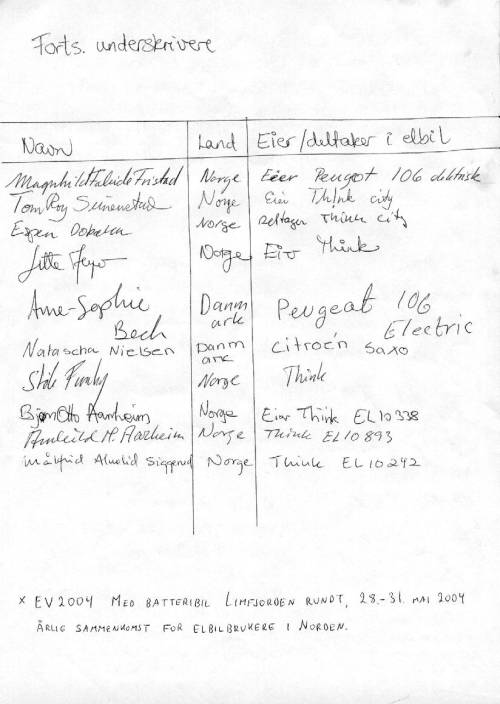 Forts. underskrivere
Navn Land Eier/deltaker i elbil
Norge Eier Peugeot 106
Tom Roy Norge Eier Th!nk city
Espen Norge Deltager Think city
Norge Eier Think
Anne-Sophie Bech Danmark Peugeot 106 Electric
Natascha Nielsen Danmark Citroën Saxo
Norge Think
Bjørn Otto Aarheim Norge Eier Think EL10338
Aarheim Norge Think EL10893
Norge Think EL10242
x EV2004 MED BATTERIBIL LIMFJORDEN RUNDT, 28.-31. MAI 2004
ÅRLIG SAMMENKOMST FOR ELBILBRUKERE I NORDEN.